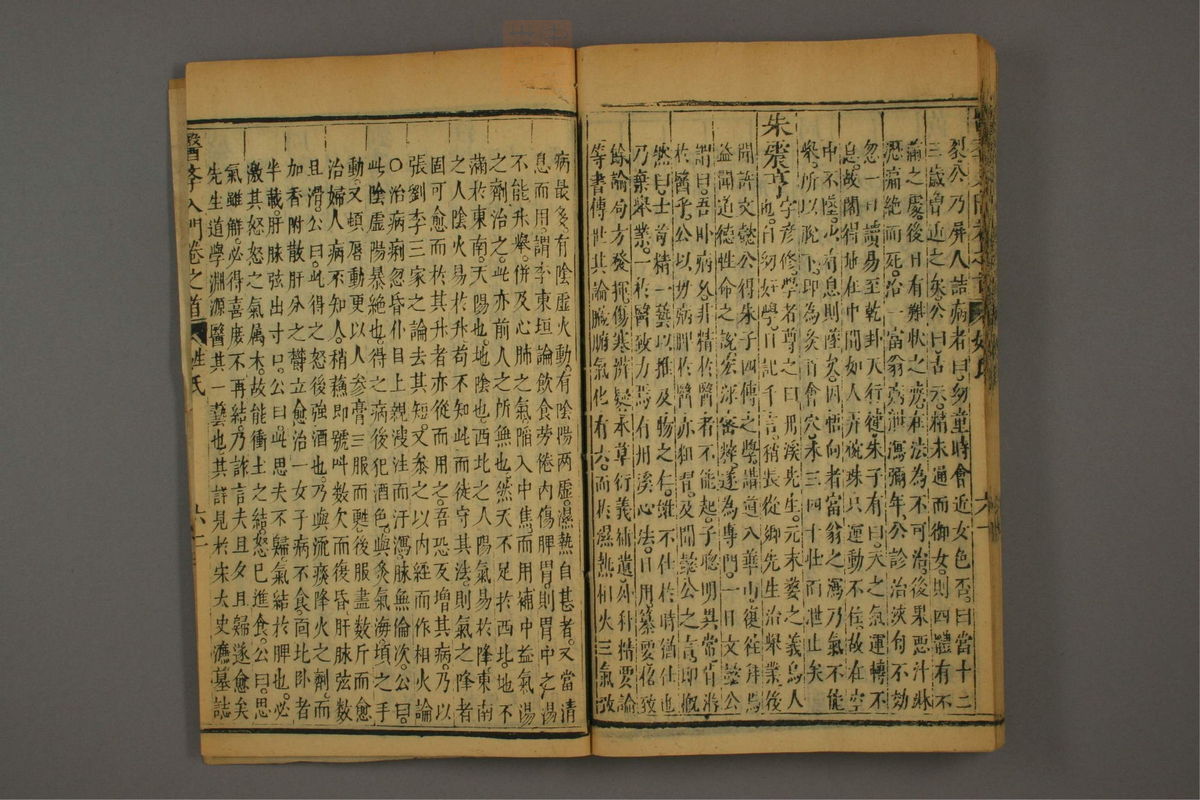 裂公乃屏人詰病者曰幼童時曾近女色否曰當十二
三歲曾近之矣公曰古云精未通而御女則四體有不
滿之處後日有難狀之疾在法為不可治後果惡汗淋
漓痛絕而死治一富翁病泄瀉彌年公診治浹旬不効
忽一日讀易至乾卦天行健朱子有曰天之氣運轉不
息故閣得地在中間如人弄椀珠只運動不住故在空
中不墜少有息則墜矣因悟向者富翁之瀉乃氣不能
舉所以脫下即為灸百會穴未三四十壯而泄止矣
朱彥脩字彥修學者尊之曰丹溪先生元末婺之義烏人
也自幼好學日記千言稍長從鄉先生治舉業後
聞許文懿公得朱子四傳之學講道八華山復往拜焉
益聞道德性命之說宏深密粹遂為專門一日文懿公
謂曰吾臥病久非精於醫者不能起子聰明異常肯游
於醫乎公以母病脾於醫亦粗習及聞懿公之言即慨
然曰士苟精一藝以推及物之仁雖不仕於時猶仕也
乃棄舉業一於醫致力焉有丹溪心法日用纂要格致
餘論局方發揮傷寒辨疑本草衍義補遺外科精要論
等書傳世其論臟腑氣化有六而於濕熱相火三氣致
病最多有陰虛火動有陰陽两虛濕熱自甚者又當清
息而用謂李東垣論飲食勞倦內傷脾胃則胃中之陽
不能升舉併及心肺之氣陷入中焦而用補中益氣湯
之劑治之此亦前人之所無也然天不足於西北地不
滿於東南天陽也地陰也西北之人陽氣易於降東南
之人陰火易於升苟不知此而徒守其法則氣之降者
固可愈而於其升者亦從而用之吾恐反增其病乃以
張劉李三家之論去其短又參之以內經而作相火論
○治病痢忽昏仆目上視溲注而汗瀉脉無倫次公曰
此陰虛陽暴絕也得之病後犯酒色與灸氣海頃之手
動又頓唇動更以人參膏三服而甦後服盡数斤而愈
治婦人病不知人稍蘇即號叫数欠而後昏肝脉弦数
且滑公曰此得之怒後強酒也乃與流痰降火之劑而
加香附散肝分之鬱立愈治一女子病不食面北卧者
半載肝脉弦出寸口公曰此思夫不歸氣結於脾也必
激其怒怒之氣属木故能衝土之結怒已進食公曰思
氣雖解必得喜庶不再結乃詐言夫且夕且歸遂愈矣
先生道學淵源醫其一藝也其詳見於宋太史濂墓誌
醫學入門卷之首 姓氏 六二